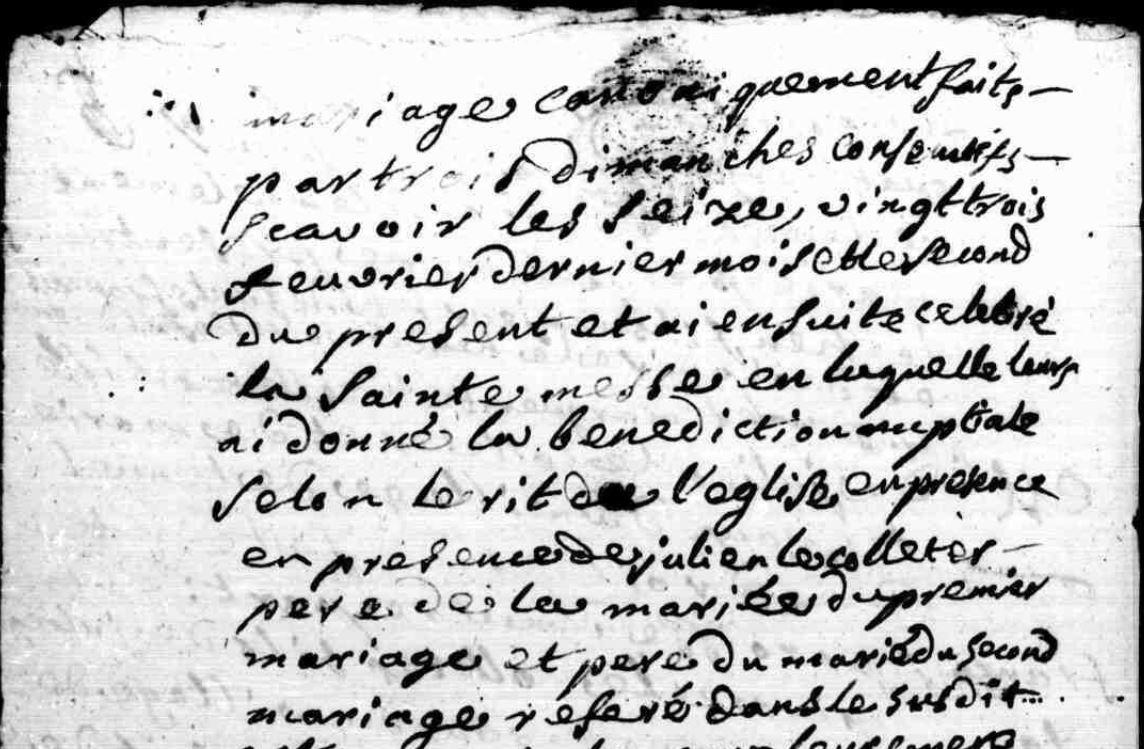 mariage canoniquement faits
par trois dimanches consecutifs
scavoir les seize, vingt trois
feuvrier dernier mois et le second
du present et ai ensuite celebré
la sainte messe en laquelle leurs
ai donné la benediction nuptiale
selon le rit de l'eglise en presence
en presence de julien le colleter
pere de la mariée du premier
mariage et pere du marié du second
mariage referé dans le susdit